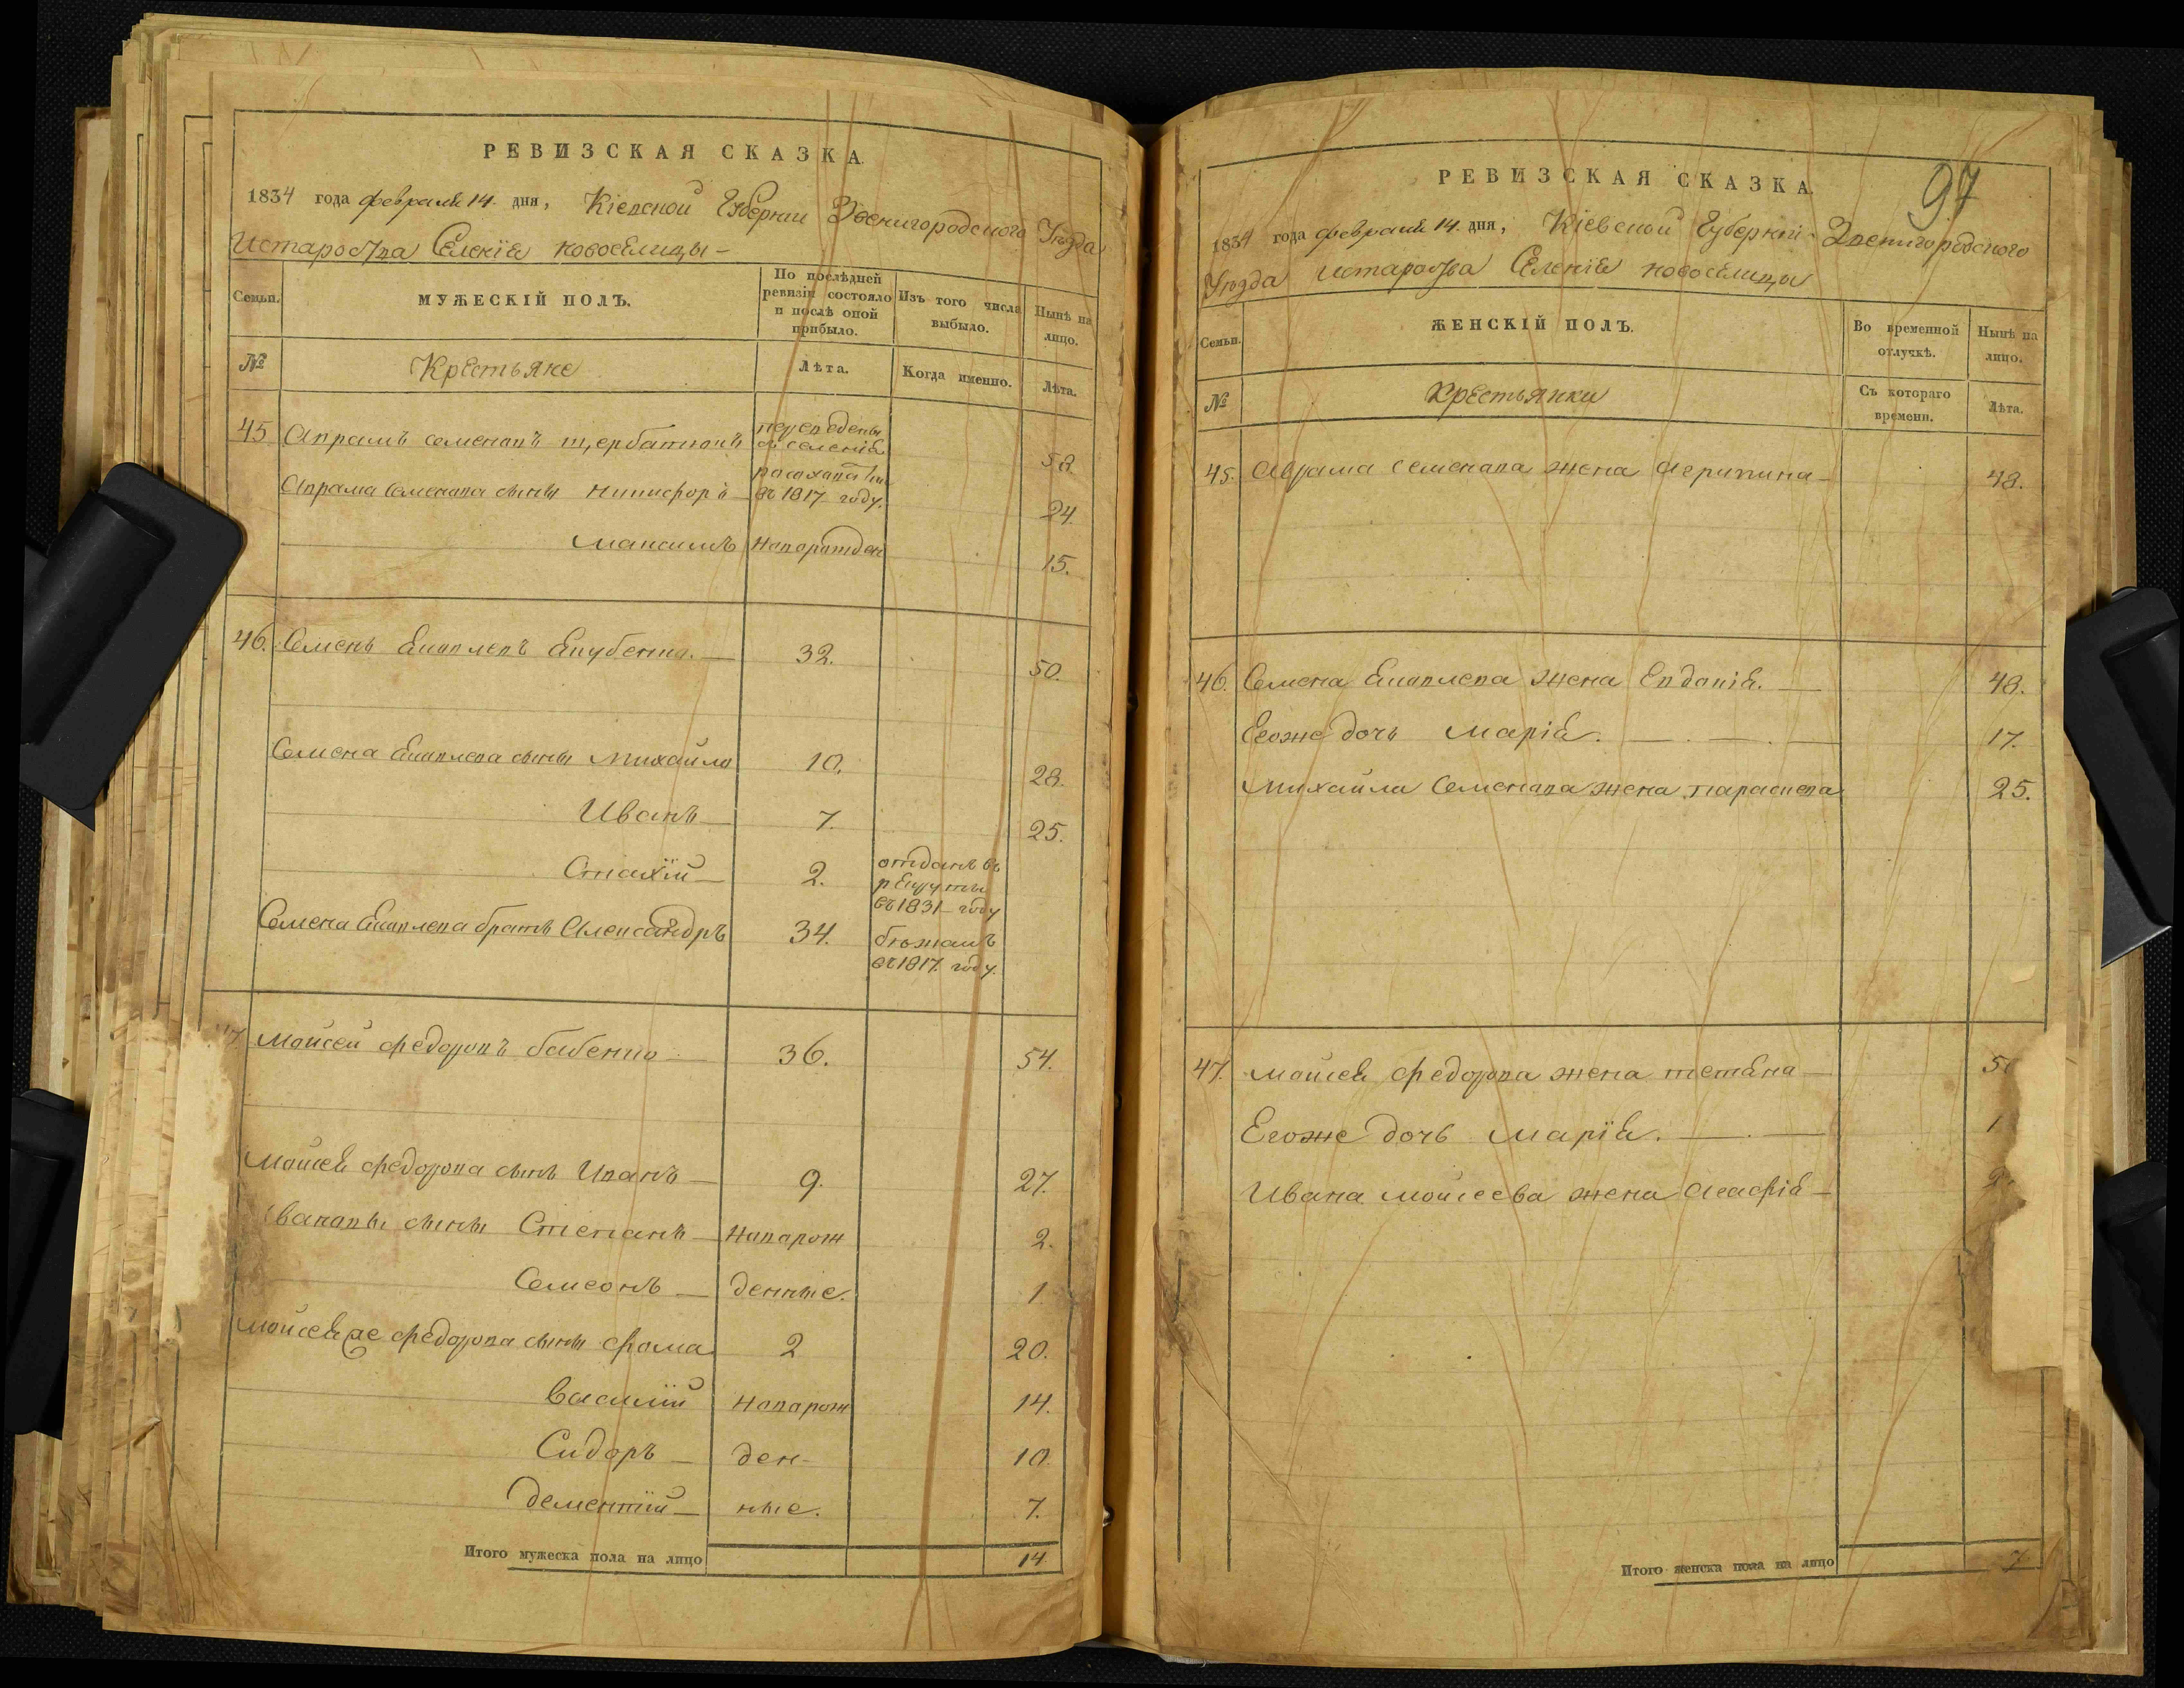 РЕВИЗСКАЯ СКАЗКА.
1834 года февраля 14. дня, Кіевской Губерніи Звенигородского Уѣзда
Истароства Селенія новоселицы -
Семьи.
МУЖЕСКІЙ ПОЛЪ.
По послѣдней ревизіи состояло и послѣ оной прибыло.
Изъ того числа выбыло.
Нынѣ на лицо.
№
Крестьяне
Лѣта.
Когда именно.
Лѣта.
45 Аврамъ семеновъ щербатюкъ переведены съ селенія 58.
Аврама Семенова сыны Никифоръ въ 1817 году. 24.
Максимъ новорожден 15.
46. Семенъ Яковлевъ Якубенко. 32. 50.
Семена Яковлева сыны Михайло 10. 28.
Иванъ 7. 25.
Стахій 2. отданъ въ рекруты въ 1831 году
Семена Яковлева братъ Александръ 34. бѣжалъ въ 1817. году.
Мойсей федоровъ бабенко 36. 54.
Мойсея федорова сынъ Иванъ 9. 27.
вановы сыны Степанъ новорож 2.
Семеонъ денные. 1.
Мойсея же федорова сыны фома 2 20.
Василій новорож 14.
Сидоръ ден- 10.
дементій ные. 7.
Итого мужеска пола на лицо 14
РЕВИЗСКАЯ СКАЗКА.
97
1834 года февраля 14. дня, Кіевской Губерніи Звенигородского
Уѣзда Истароства Селенія новоселицы
Семьи.
ЖЕНСКІЙ ПОЛЪ.
Во временной отлучкѣ.
Нынѣ на лицо.
№
Крестьянки
Съ котораго времени.
Лѣта.
45. Аврама Семенова жена Агрипина 48.
46. Семена Яковлева жена Евдокія. 48.
Егоже дочь Марія. 17.
Михайла Семенова жена параскева 25.
47. Мойсея федорова жена тетяна
Егоже дочь Марія.
Ивана мойсеева жена Агафія
Итого женска пола на лицо 7